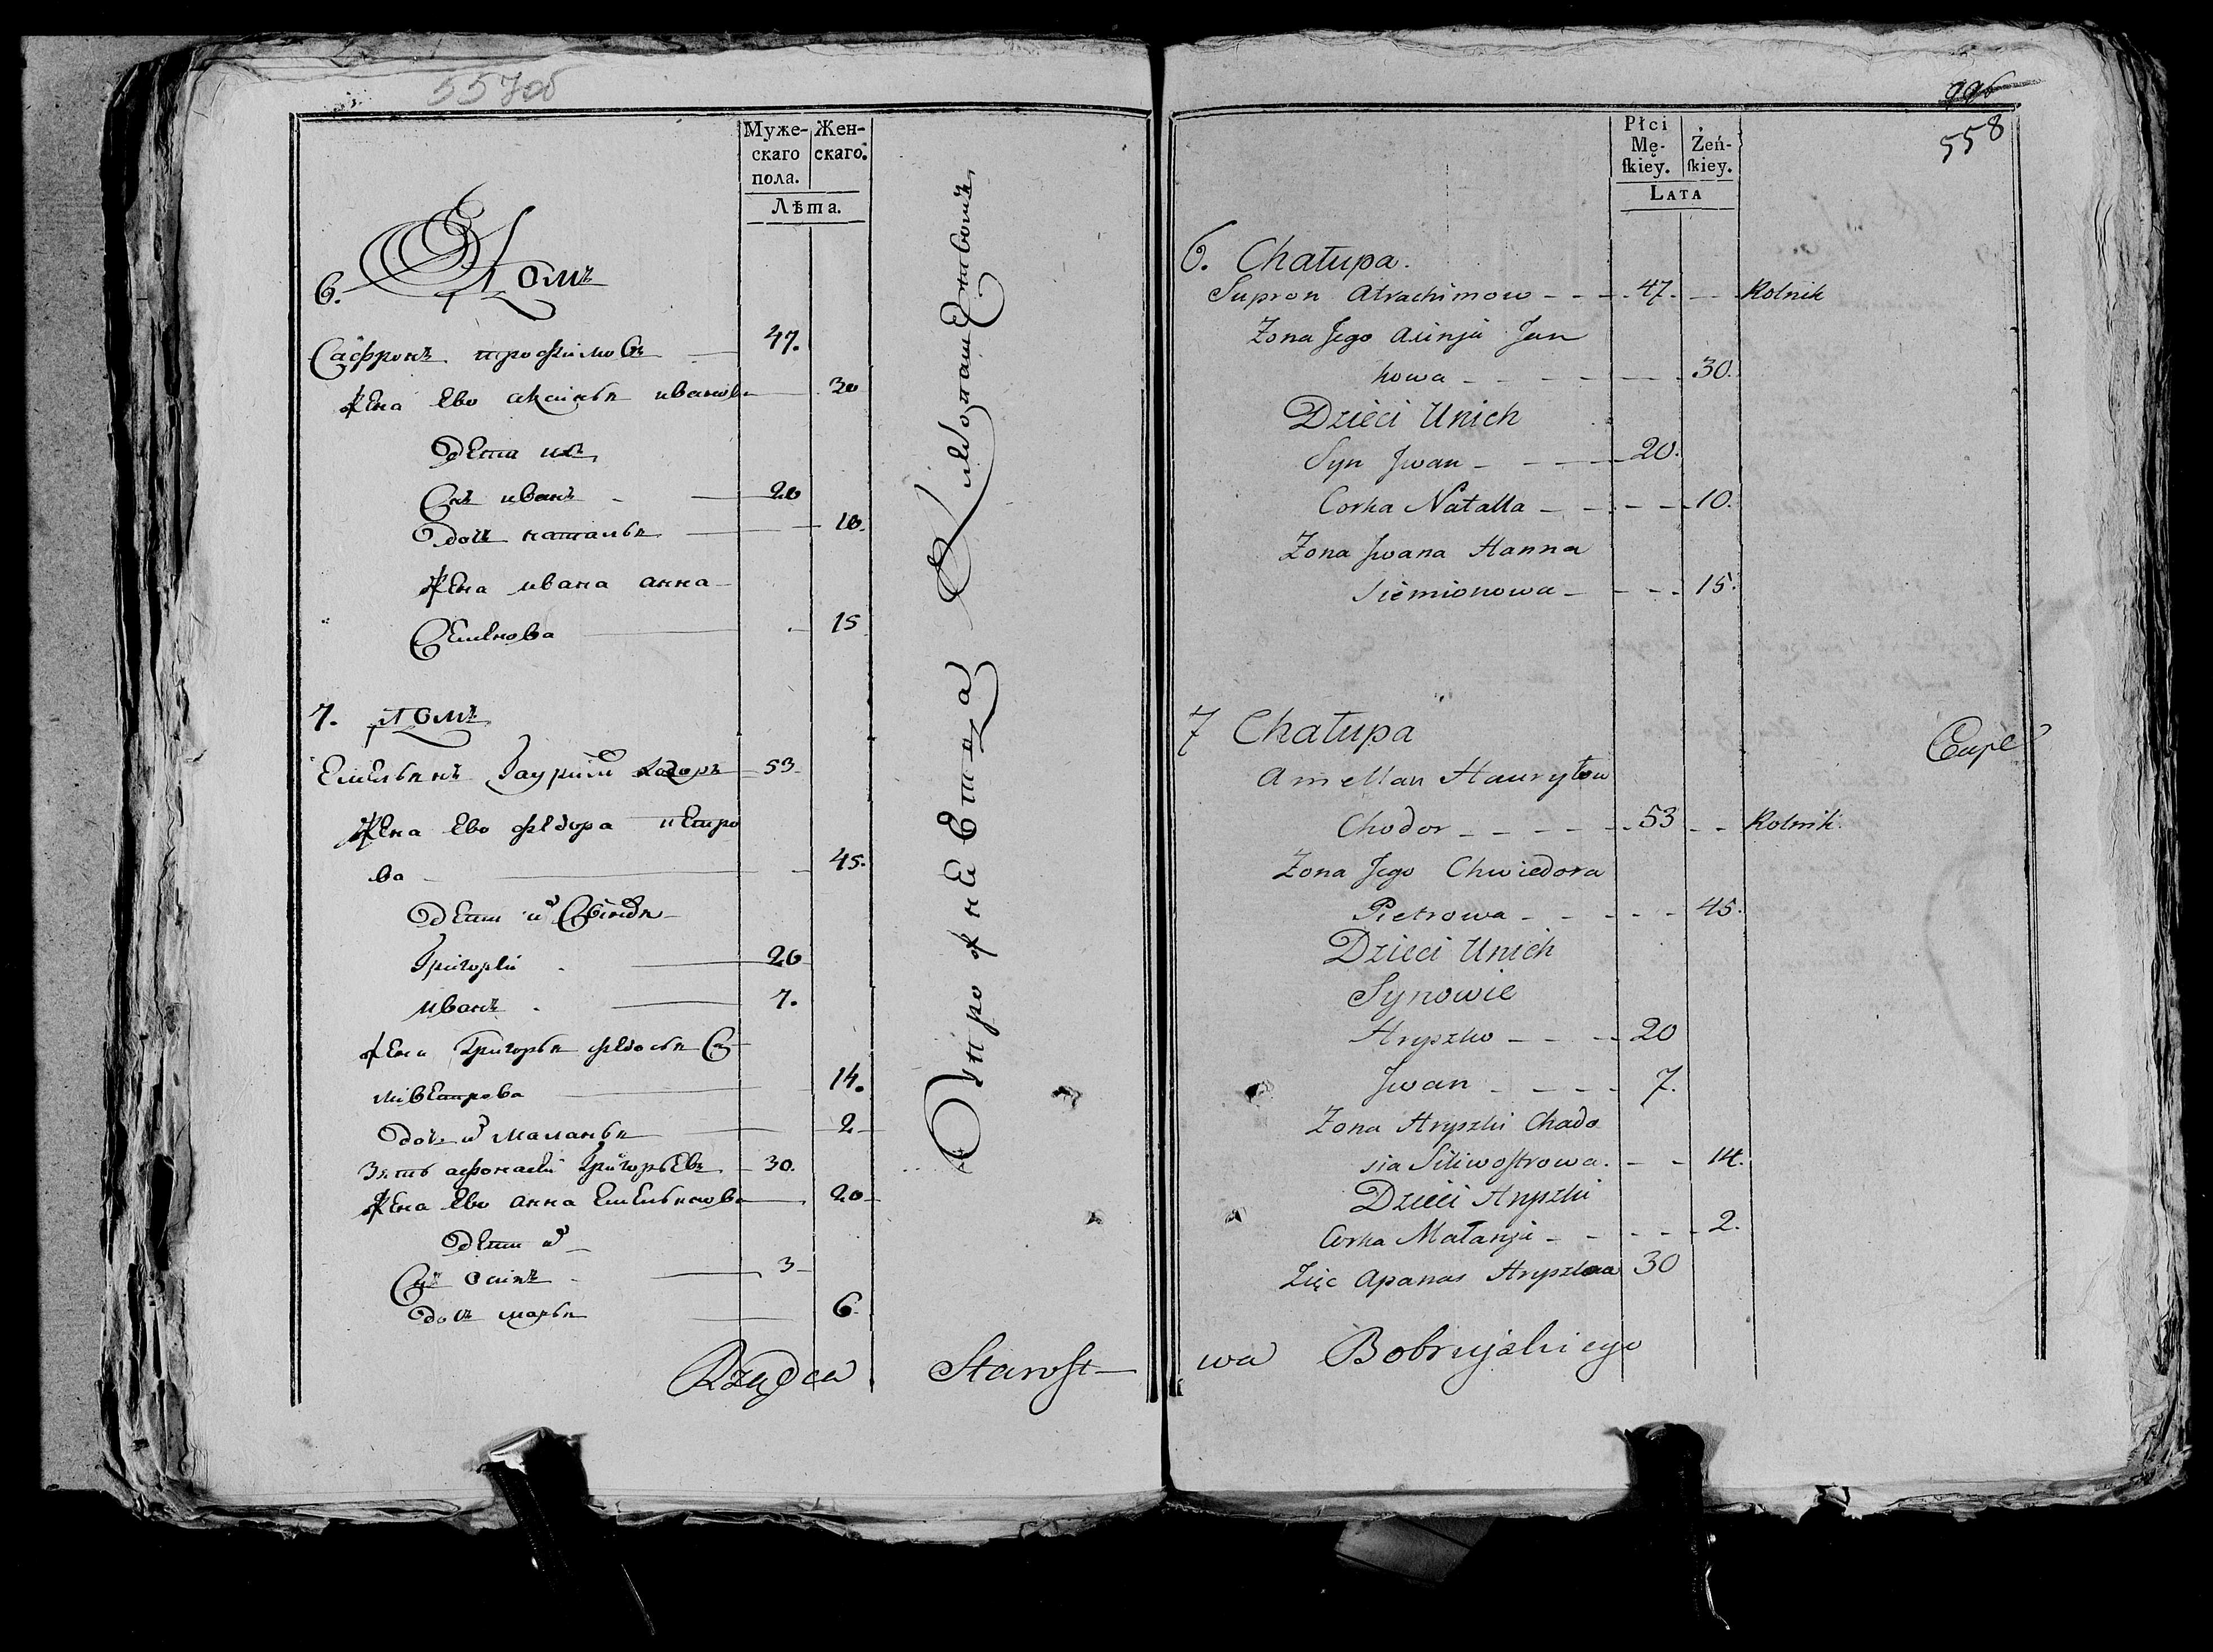 557об
Муже-
скаго
пола.
Жен-
скаго.
Лѣта.
6. Домъ
Сафронъ трофимовъ 47.
жена Ево аксинья иванова 30
дети ихъ
Снъ иванъ 20
дочь наталья 10.
жена ивана анна
Семенова 15
7. Домъ
Емельянъ Гаурили Хадоръ 53
жена Ево федора петро
ва 45.
дети
Григорей 20
иванъ 7.
жена Григорья федосья Си
ливестрова 14.
дочь маланья 2
Зять афонасей Григорьевъ 30.
жена Ево анна Емельянова 20
дети
Снъ осипъ 3
дочь марья 6.
Rządca Starost-
996
558
Płci
Mę-
ſkiey.
Żeń-
ſkiey.
LATA
6. Chałupa.
Supron Atrachimow 47. Rolnik
Zona Jego Axinja Jan
kowa 30.
Dzieci Unich
Syn Jwan 20.
Corka Natalla 10.
Zona Jwana Hanna
Siemionowa 15.
7 Chałupa
Amellan Hauryłow
Chodor 53 Rolnik.
Zona Jego Chwiedora
Pietrowa 45.
Dzieci Unich
Synowie
Hryszko 20
Jwan 7.
Zona Hryszki Chado
sia Siliwostrowa. 14.
Dzieci Hryszki
Corka Małanja 2.
Zięc Apanas 30
wa Bobrujskiego